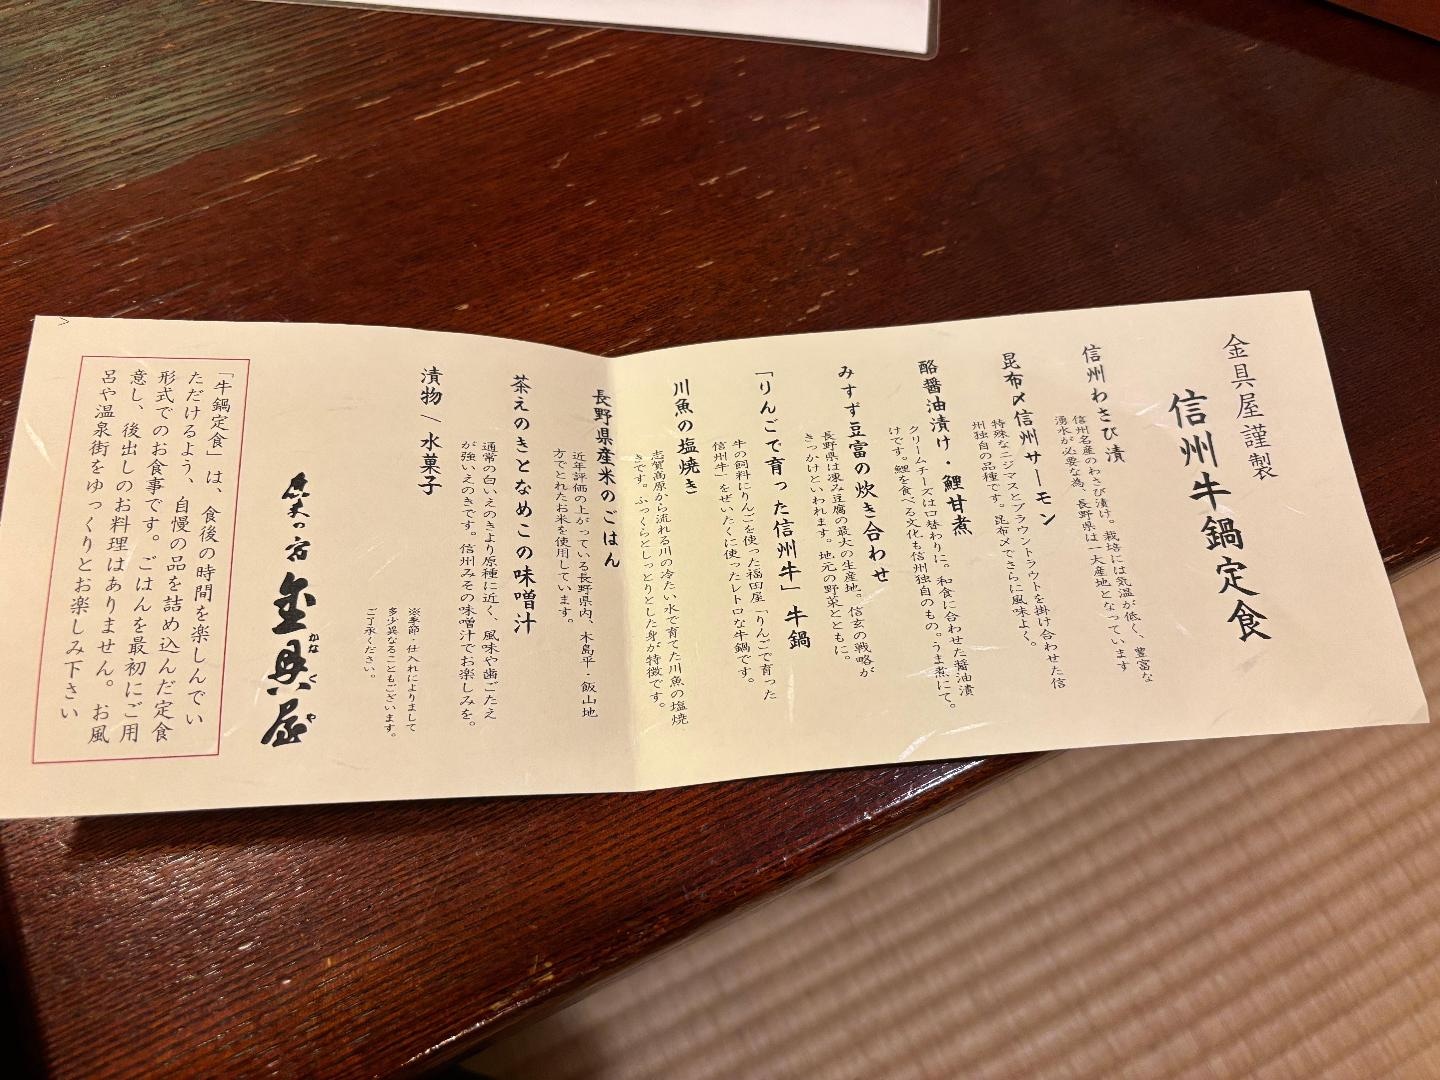 金具屋謹製
信州牛鍋定食
信州わさび漬
信州名産のわさび漬け。栽培には気温が低く、豊富な
湧水が必要な為、長野県は一大産地となっています
昆布〆信州サーモン
特殊なニジマスとブラウントラウトを掛け合わせた信
州独自の品種です。昆布〆でさらに風味よく。
酪醤油漬け・鯉甘煮
クリームチーズは口替わりに。和食に合わせた醤油漬
けです。鯉を食べる文化も信州独自のもの。うま煮にて。
みすず豆富の炊き合わせ
長野県は凍み豆腐の最大の生産地。信玄の戦略が
きっかけといわれます。地元の野菜とともに。
「りんごで育った信州牛」牛鍋
牛の飼料にりんごを使った福田屋「りんごで育った
信州牛」をぜいたくに使ったレトロな牛鍋です。
川魚の塩焼き
志賀高原から流れる川の冷たい水で育てた川魚の塩焼
きです。ふっくらとしっとりとした身が特徴です。
長野県産米のごはん
近年評価の上がっている長野県内、木島平・飯山地
方でとれたお米を使用しています。
茶えのきとなめこの味噌汁
通常の白いえのきより原種に近く、風味や歯ごたえ
が強いえのきです。信州みその味噌汁でお楽しみを。
漬物／水菓子
※季節・仕入れによりまして
多少異なることもございます。
ご了承ください。
金具屋
かなぐや
「牛鍋定食」は、食後の時間を楽しんでい
ただけるよう、自慢の品を詰め込んだ定食
形式でのお食事です。ごはんを最初にご用
意し、後出しのお料理はありません。お風
呂や温泉街をゆっくりとお楽しみ下さい